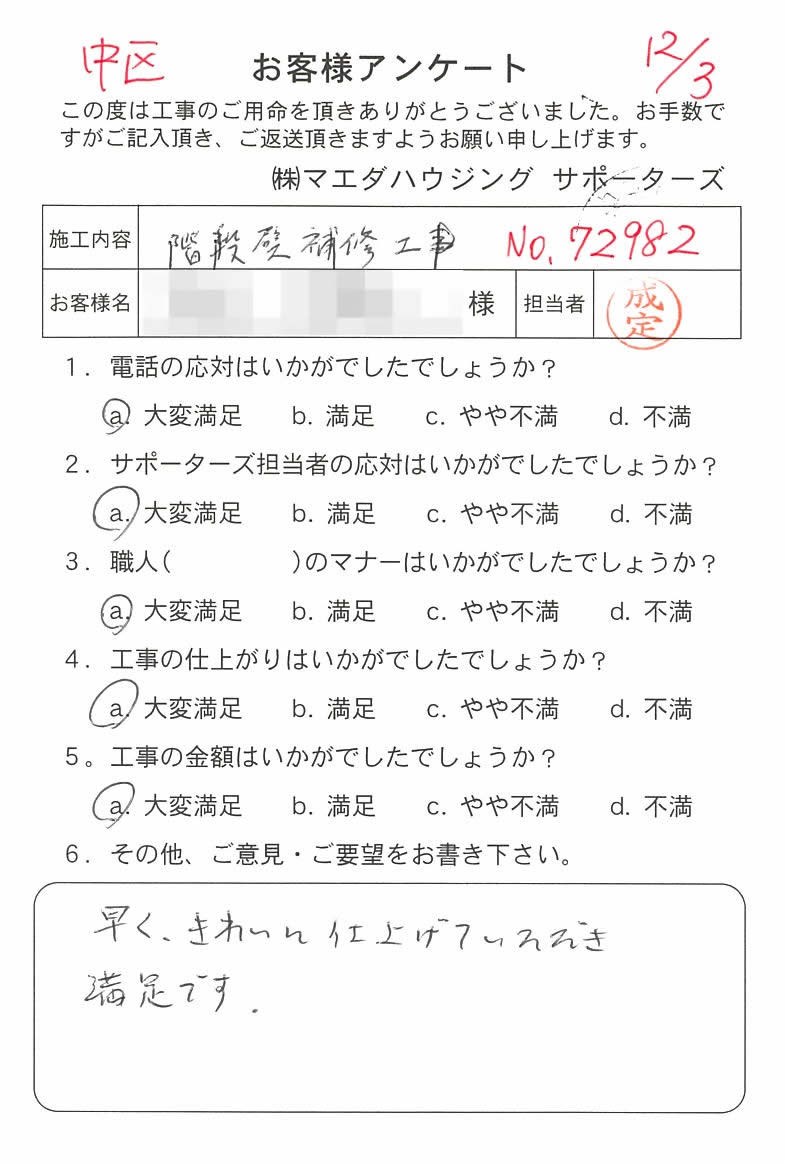 中区 お客様アンケート 12/3
この度は工事のご用命を頂きありがとうございました。お手数で
すがご記入頂き、ご返送頂きますようお願い申し上げます。
㈱マエダハウジング サポーターズ
施工内容 階段壁補修工事 No.72982
お客様名 様 担当者 成定
1. 電話の応対はいかがでしたでしょうか？
a. 大変満足 b. 満足 c. やや不満 d. 不満
2. サポーターズ担当者の応対はいかがでしたでしょうか？
a. 大変満足 b. 満足 c. やや不満 d. 不満
3. 職人( )のマナーはいかがでしたでしょうか？
a. 大変満足 b. 満足 c. やや不満 d. 不満
4. 工事の仕上がりはいかがでしたでしょうか？
a. 大変満足 b. 満足 c. やや不満 d. 不満
5。工事の金額はいかがでしたでしょうか？
a. 大変満足 b. 満足 c. やや不満 d. 不満
6. その他、ご意見・ご要望をお書き下さい。
早く、きれいに仕上げていただき
満足です.